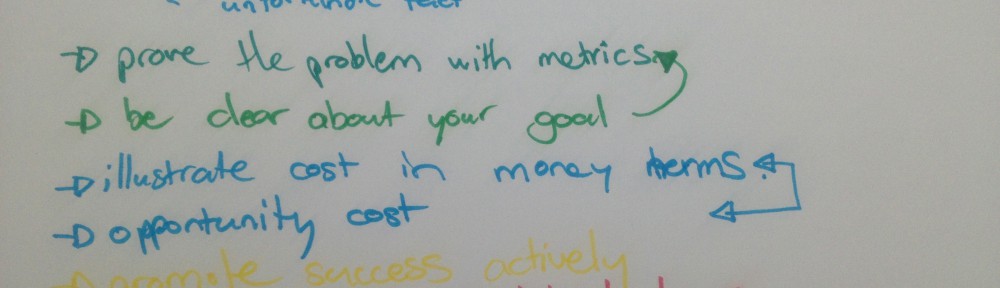 prove the problem with metrics
be clear about your goal
illustrate cost in money terms.
opportunity cost
promote success actively